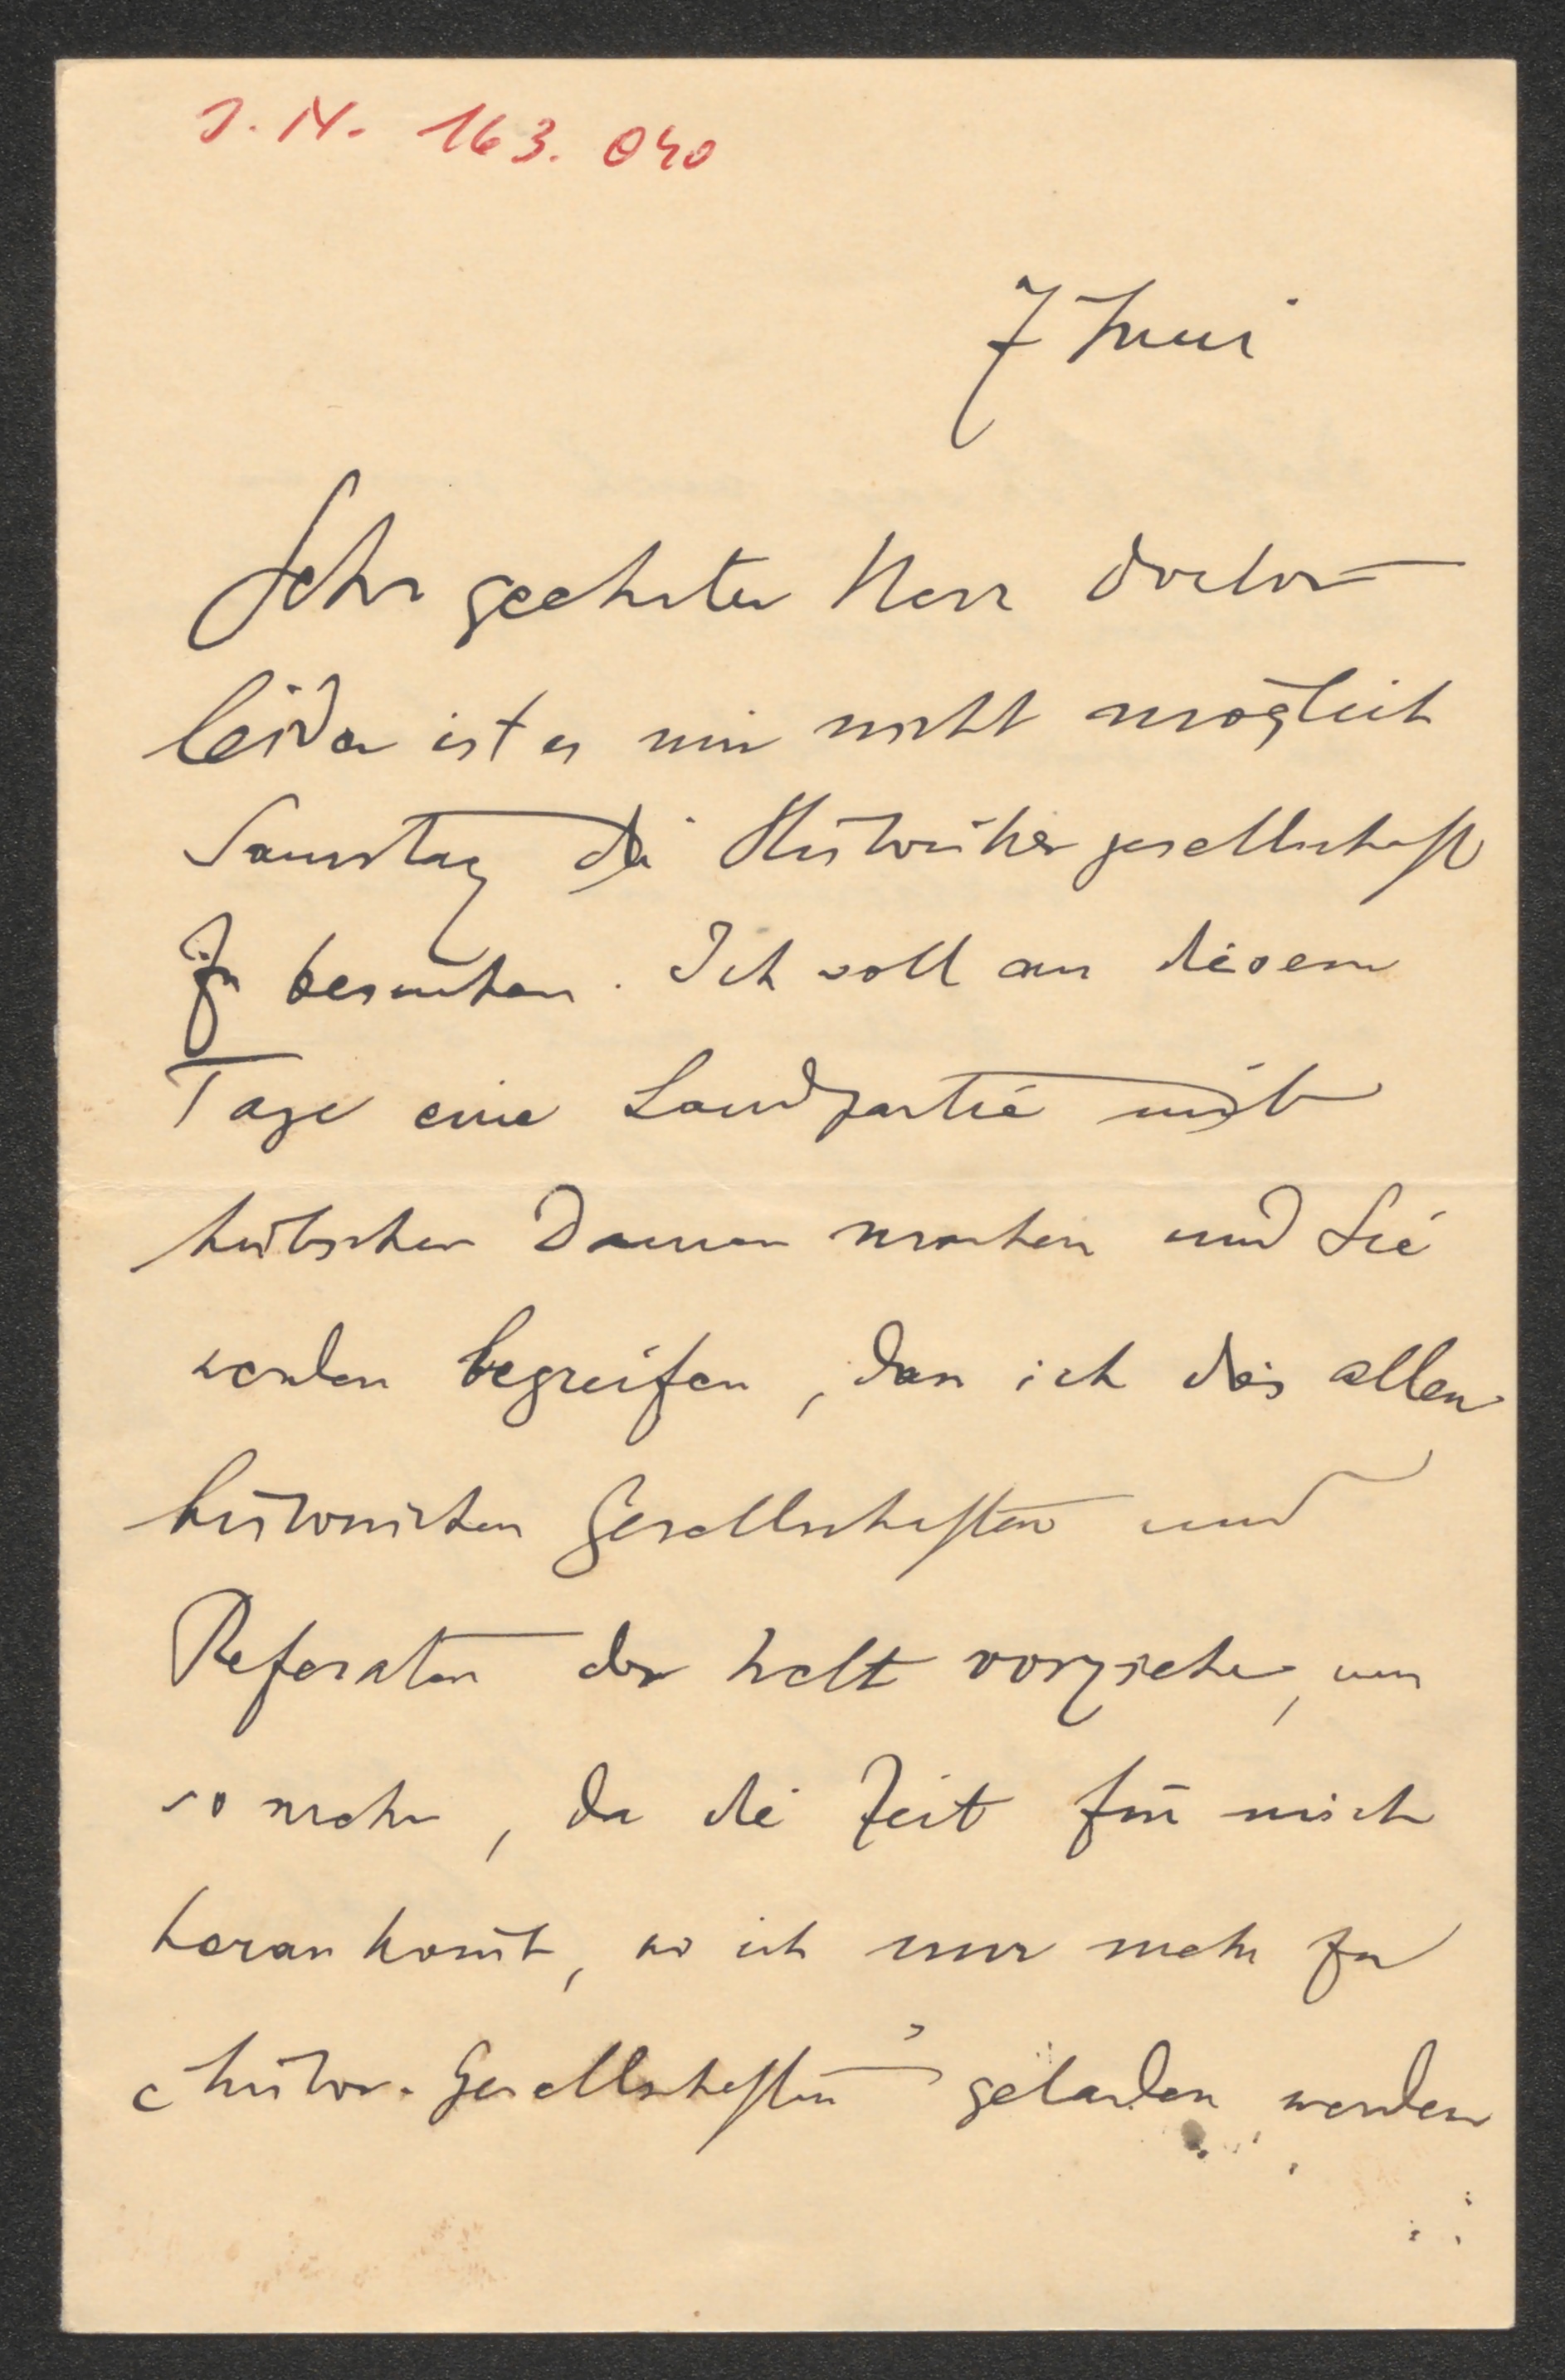 J. N. 163.040
7 Juni
Sehr geehrter Herr Doctor
leider ist es mir nicht möglich
Samstag die Historikergesellschaft
zu besuchen. Ich soll an diesem
Tage eine Landpartie mit
hübschen Damen machen und Sie
werden begreifen, dass ich dies allen
historischen Gesellschaften und
Referaten der Welt vorziehe, um
so mehr, da die Zeit für mich
heran kom̅t, wo ich nur mehr zu
"histor. Gesellschaften" geladen werden